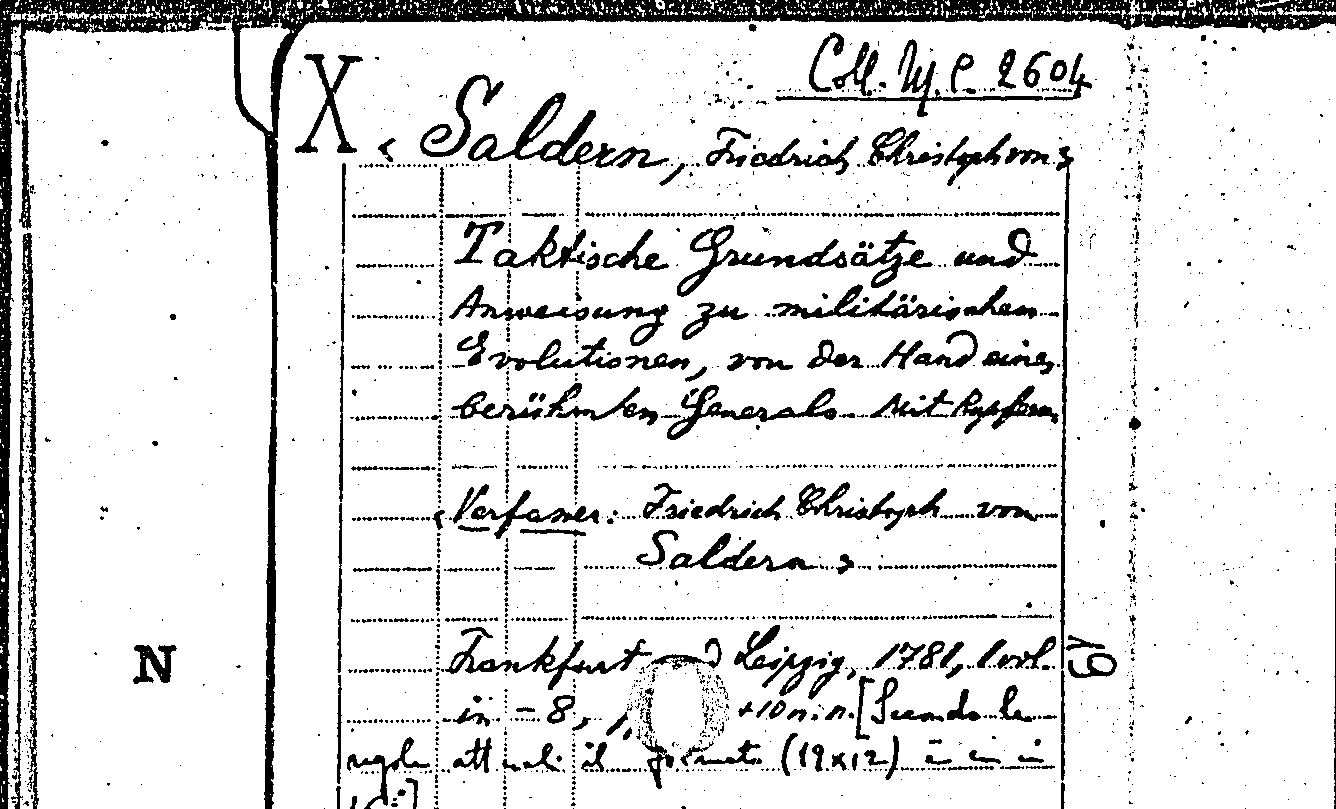 Coll. M. C. 2604
X
< Saldern, Friedrich Christoph von >
Taktische Grundsätze und
Anweisung zu militärischen
Evolutionen, von der Hand eines
berühmten Generals. Mit Kupfern.
< Verfasser: Friedrich Christoph von
Saldern >
Frankfurt Leipzig, 1781, 1 vol.
in - 8, +10 n.n. [Secondo le
regole attuali il formato (19x12) è in
N